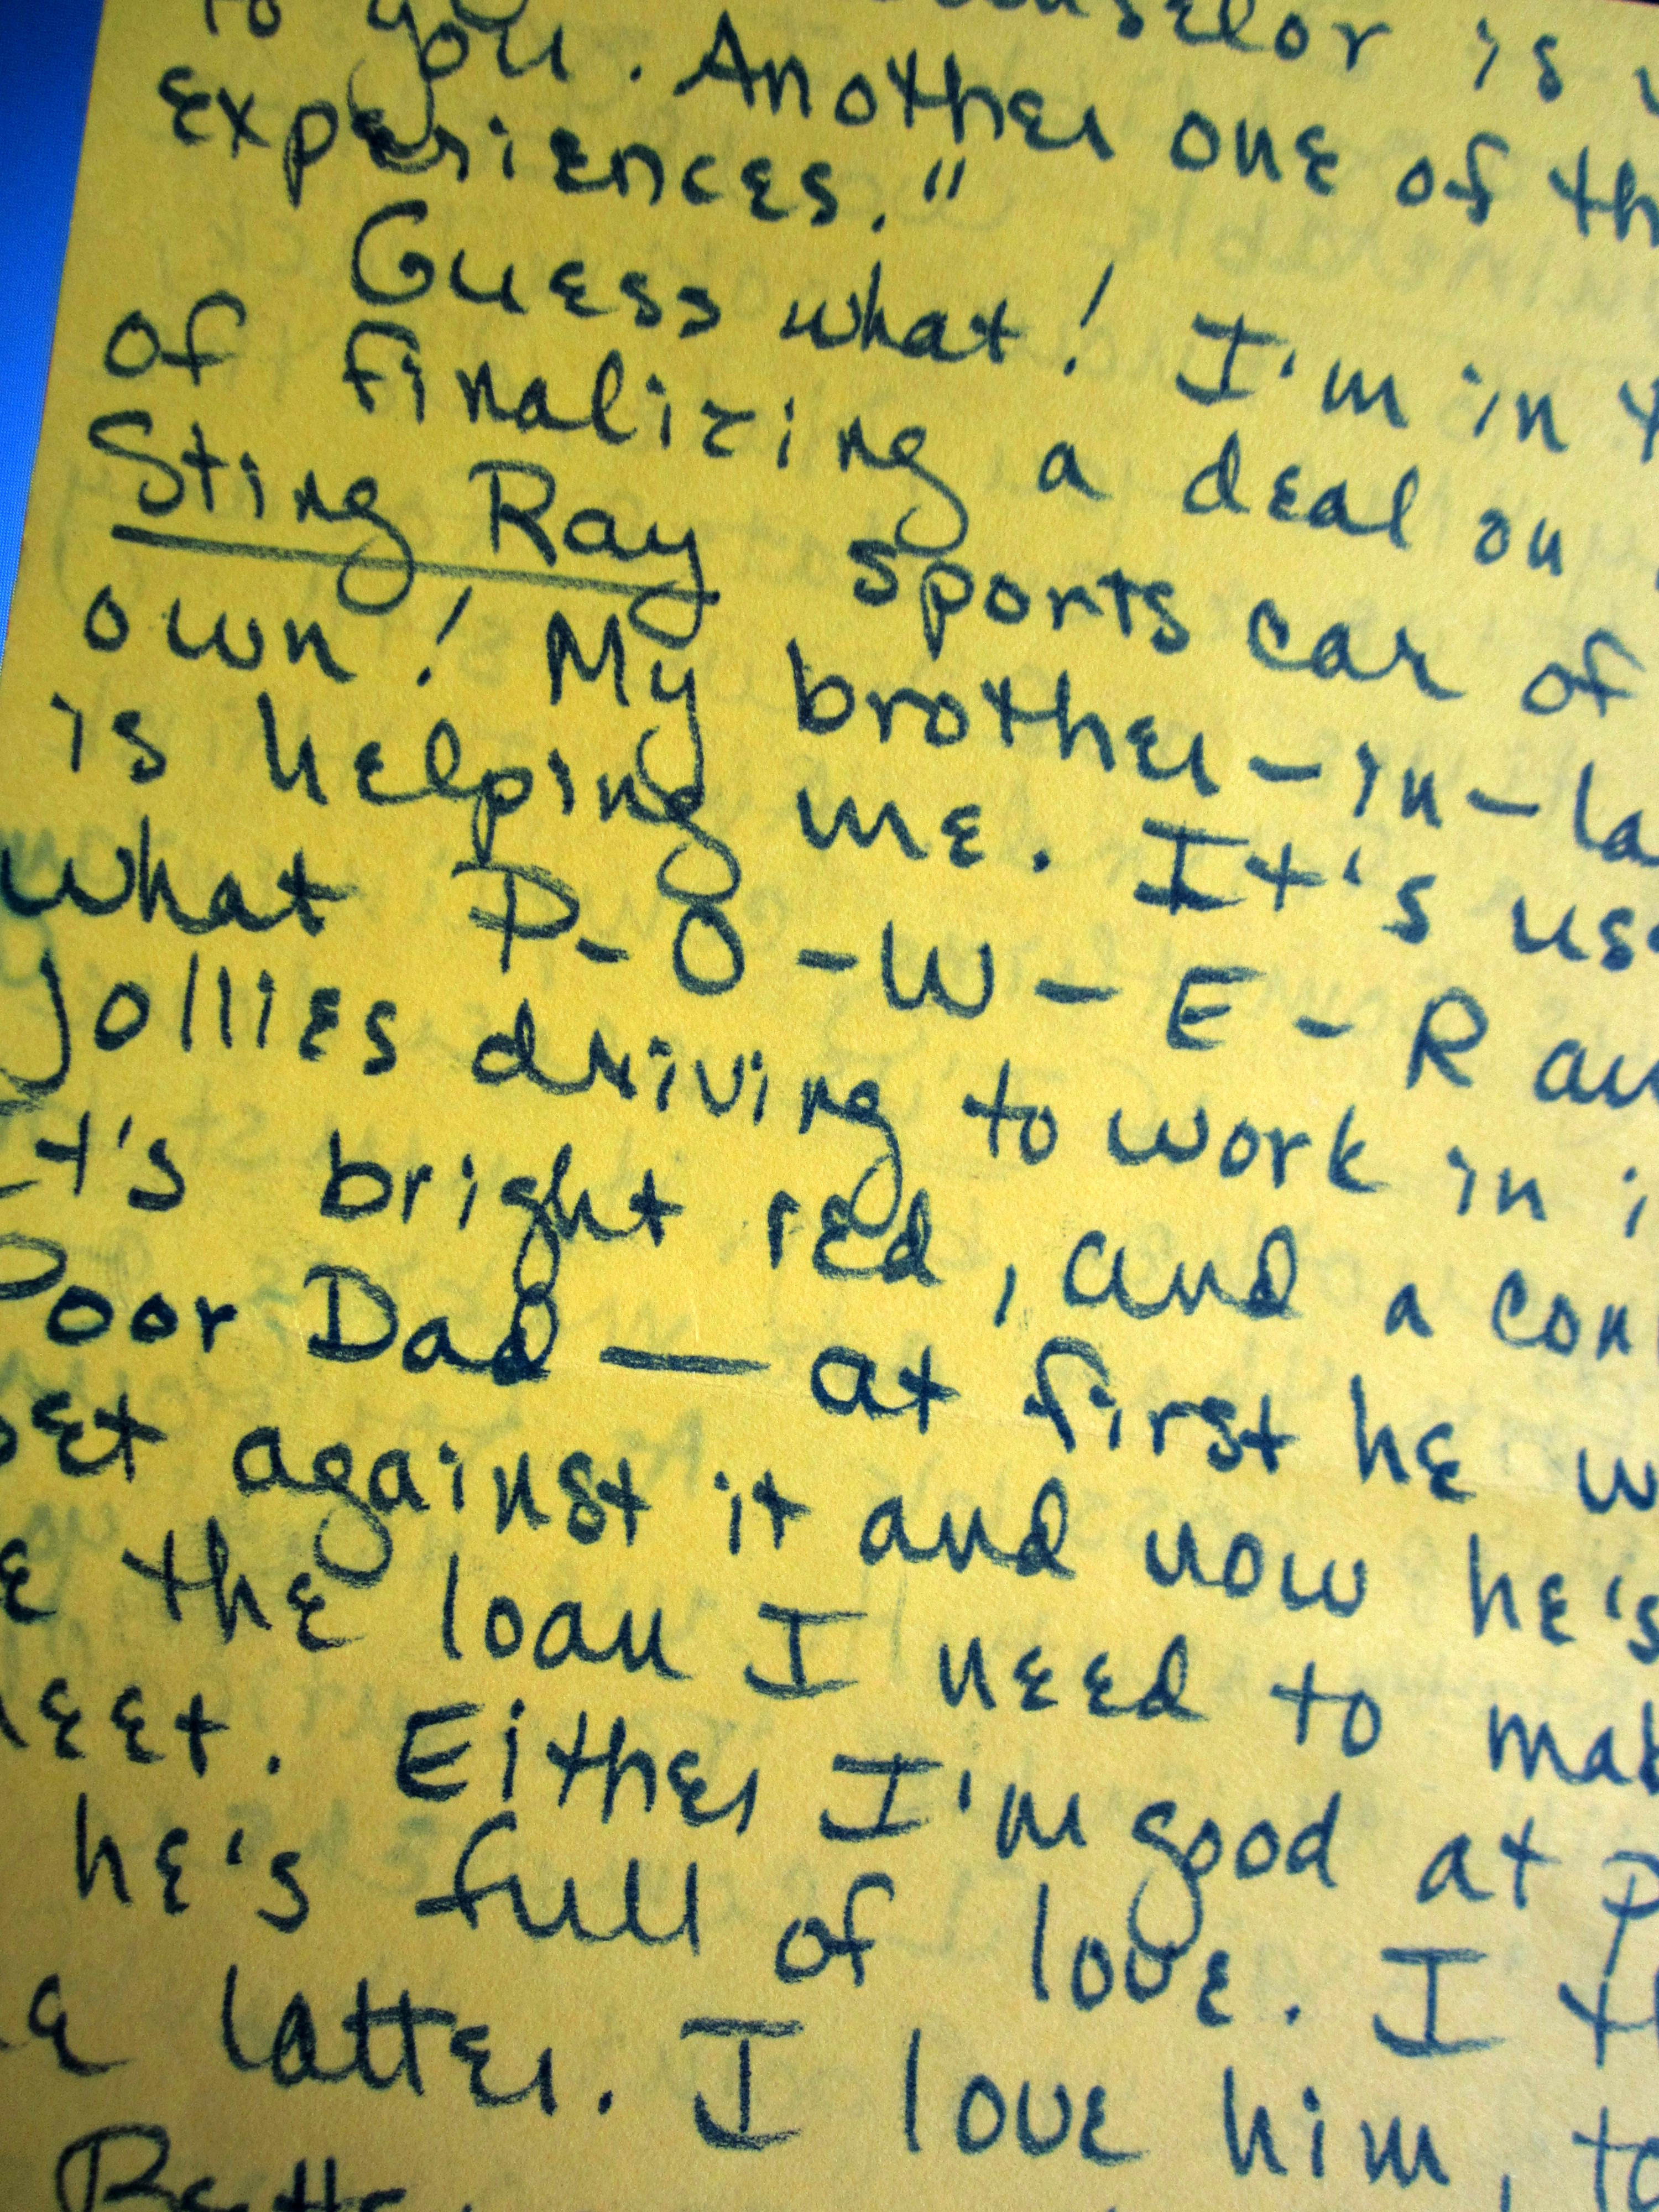 to you. counselor is
experiences." Another one of
Guess what! I'm in
of finalizing a deal on
Sting Ray sports car of
own! My brother-in-la
is helping me. It's
what P-O-W-E-R
jollies driving to work in
It's bright red, and a con
Poor Dad — at first he
set against it and now he's
the loan I need to mak
Either I'm good at
he's full of love. I
latter. I love him,